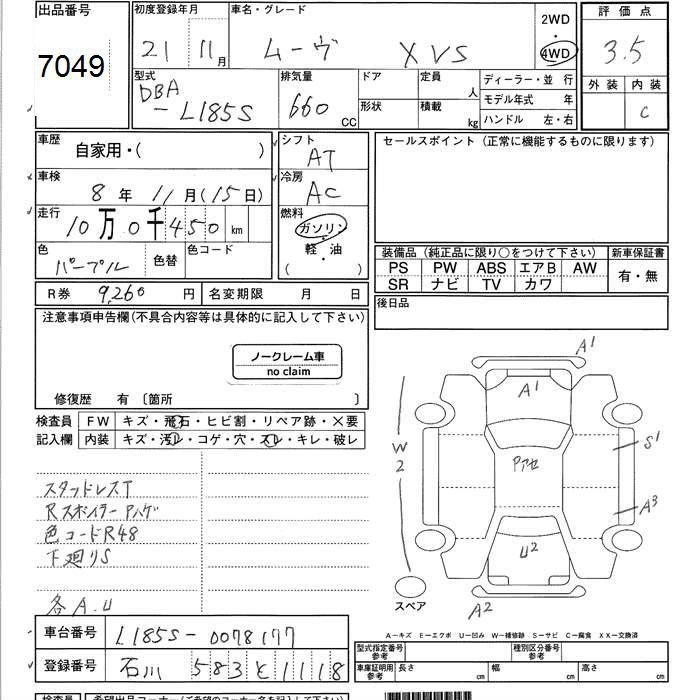 出品番号
7049
初度登録年月
21 11月
車名・グレード
ムーヴ X VS
2WD
4WD
評価点
3.5
外装 内装
C
型式
DBA
-L185S
排気量
660 CC
ドア
形状
定員 人
積載 kg
ディーラー・並 行
モデル年式 年
ハンドル 左・右
車歴
自家用・( )
シフト
AT
セールスポイント (正常に機能するものに限ります)
車検
8年 11月(15日)
冷房
AC
走行
10万0千450 km
燃料
ガソリン
軽・油
( )
色
パープル
色替
色コード
装備品 (純正品に限り○をつけて下さい)
新車保証書
PS PW ABS エアB AW
SR ナビ TV カワ
有・無
R券 9,260円
名変期限 月 日
後日品
注意事項申告欄(不具合内容等は具体的に記入して下さい)
ノークレーム車
no claim
修復歴 有 〔箇所 〕
検査員
記入欄
FW キズ・飛石・ヒビ割・リペア跡・×要
内装 キズ・汚レ・コゲ・穴・スレ・キレ・破レ
スタッドレスT
Rスポイラー Pハゲ
色コードR48
下廻りS
各A.U
A1
A1
W2
S1
Pアセ
A3
U2
A2
スペア
A-キズ E-エクボ U-凹み W-補修跡 S-サビ C-腐食 XX-交換済
車台番号
L185S-0078177
登録番号
石川 583 と 1118
型式指定番号
参考
種別区分番号
参考
車庫証明用
参考
長さ cm
幅 cm
高さ cm
検査員
希望出品コーナー(ご希望のコーナー名を記入して下さい)